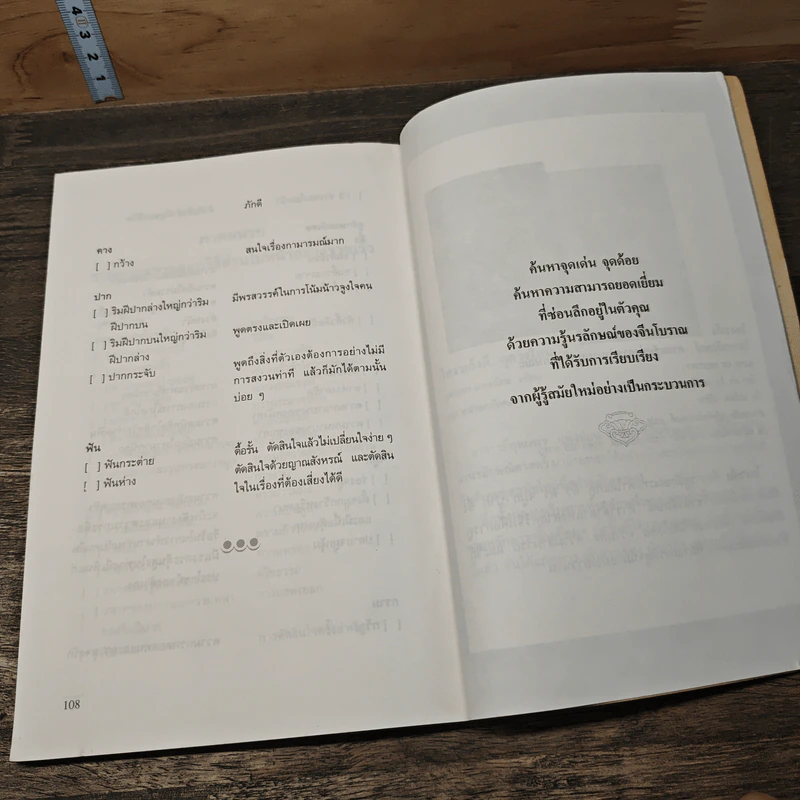 4 3 2 1
ภักดี
คาง
[ ] กว้าง
สนใจเรื่องกามารมณ์มาก
ปาก
[ ] ริมฝีปากล่างใหญ่กว่าริม
ฝีปากบน
มีพรสวรรค์ในการโน้มน้าวจูงใจคน
[ ] ริมฝีปากบนใหญ่กว่าริม
ฝีปากล่าง
พูดตรงและเปิดเผย
[ ] ปากกระจับ
พูดถึงสิ่งที่ตัวเองต้องการอย่างไม่มี
การสงวนท่าที แล้วก็มักได้ตามนั้น
บ่อย ๆ
ฟัน
[ ] ฟันกระต่าย
ดื้อรั้น ตัดสินใจแล้วไม่เปลี่ยนใจง่าย ๆ
[ ] ฟันห่าง
ตัดสินใจด้วยญาณสังหรณ์ และตัดสิน
ใจในเรื่องที่ต้องเสี่ยงได้ดี
108
ค้นหาจุดเด่น จุดด้อย
ค้นหาความสามารถยอดเยี่ยม
ที่ซ่อนลึกอยู่ในตัวคุณ
ด้วยความรู้นรลักษณ์ของจีนโบราณ
ที่ได้รับการเรียบเรียง
จากผู้รู้สมัยใหม่อย่างเป็นกระบวนการ